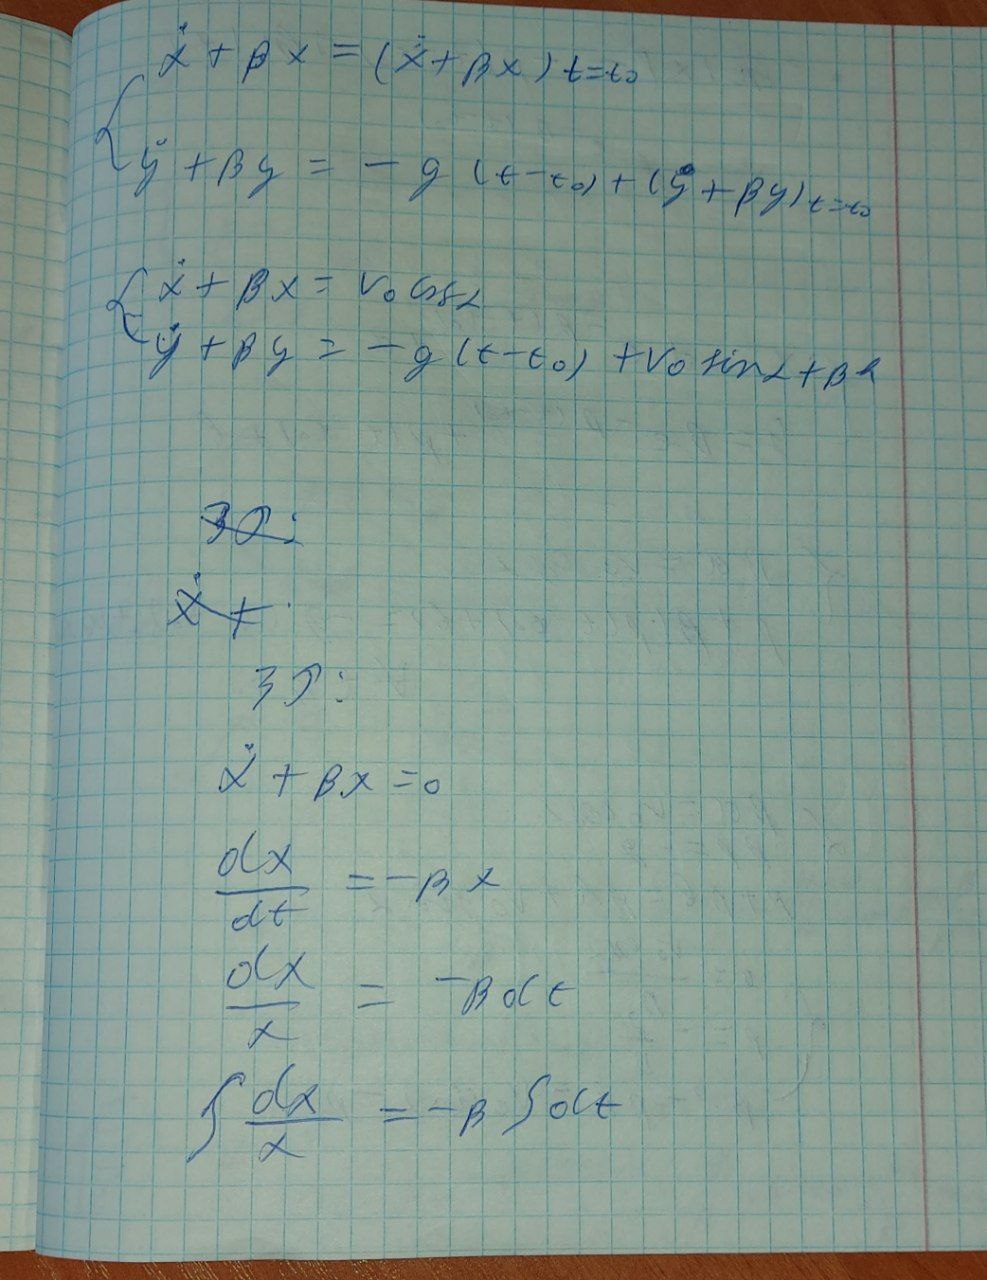 ẋ + βx = (ẋ + βx) t=t₀
ẏ + βy = - g (t - t₀) + (ẏ + βy) t=t₀
ẋ + βx = v₀ cosα
ẏ + βy = - g (t - t₀) + v₀ sinα + βh
ẋ +
ẋ + βx = 0
dx/dt = - βx
dx/x = - β dt
∫ dx/x = - β ∫ dt